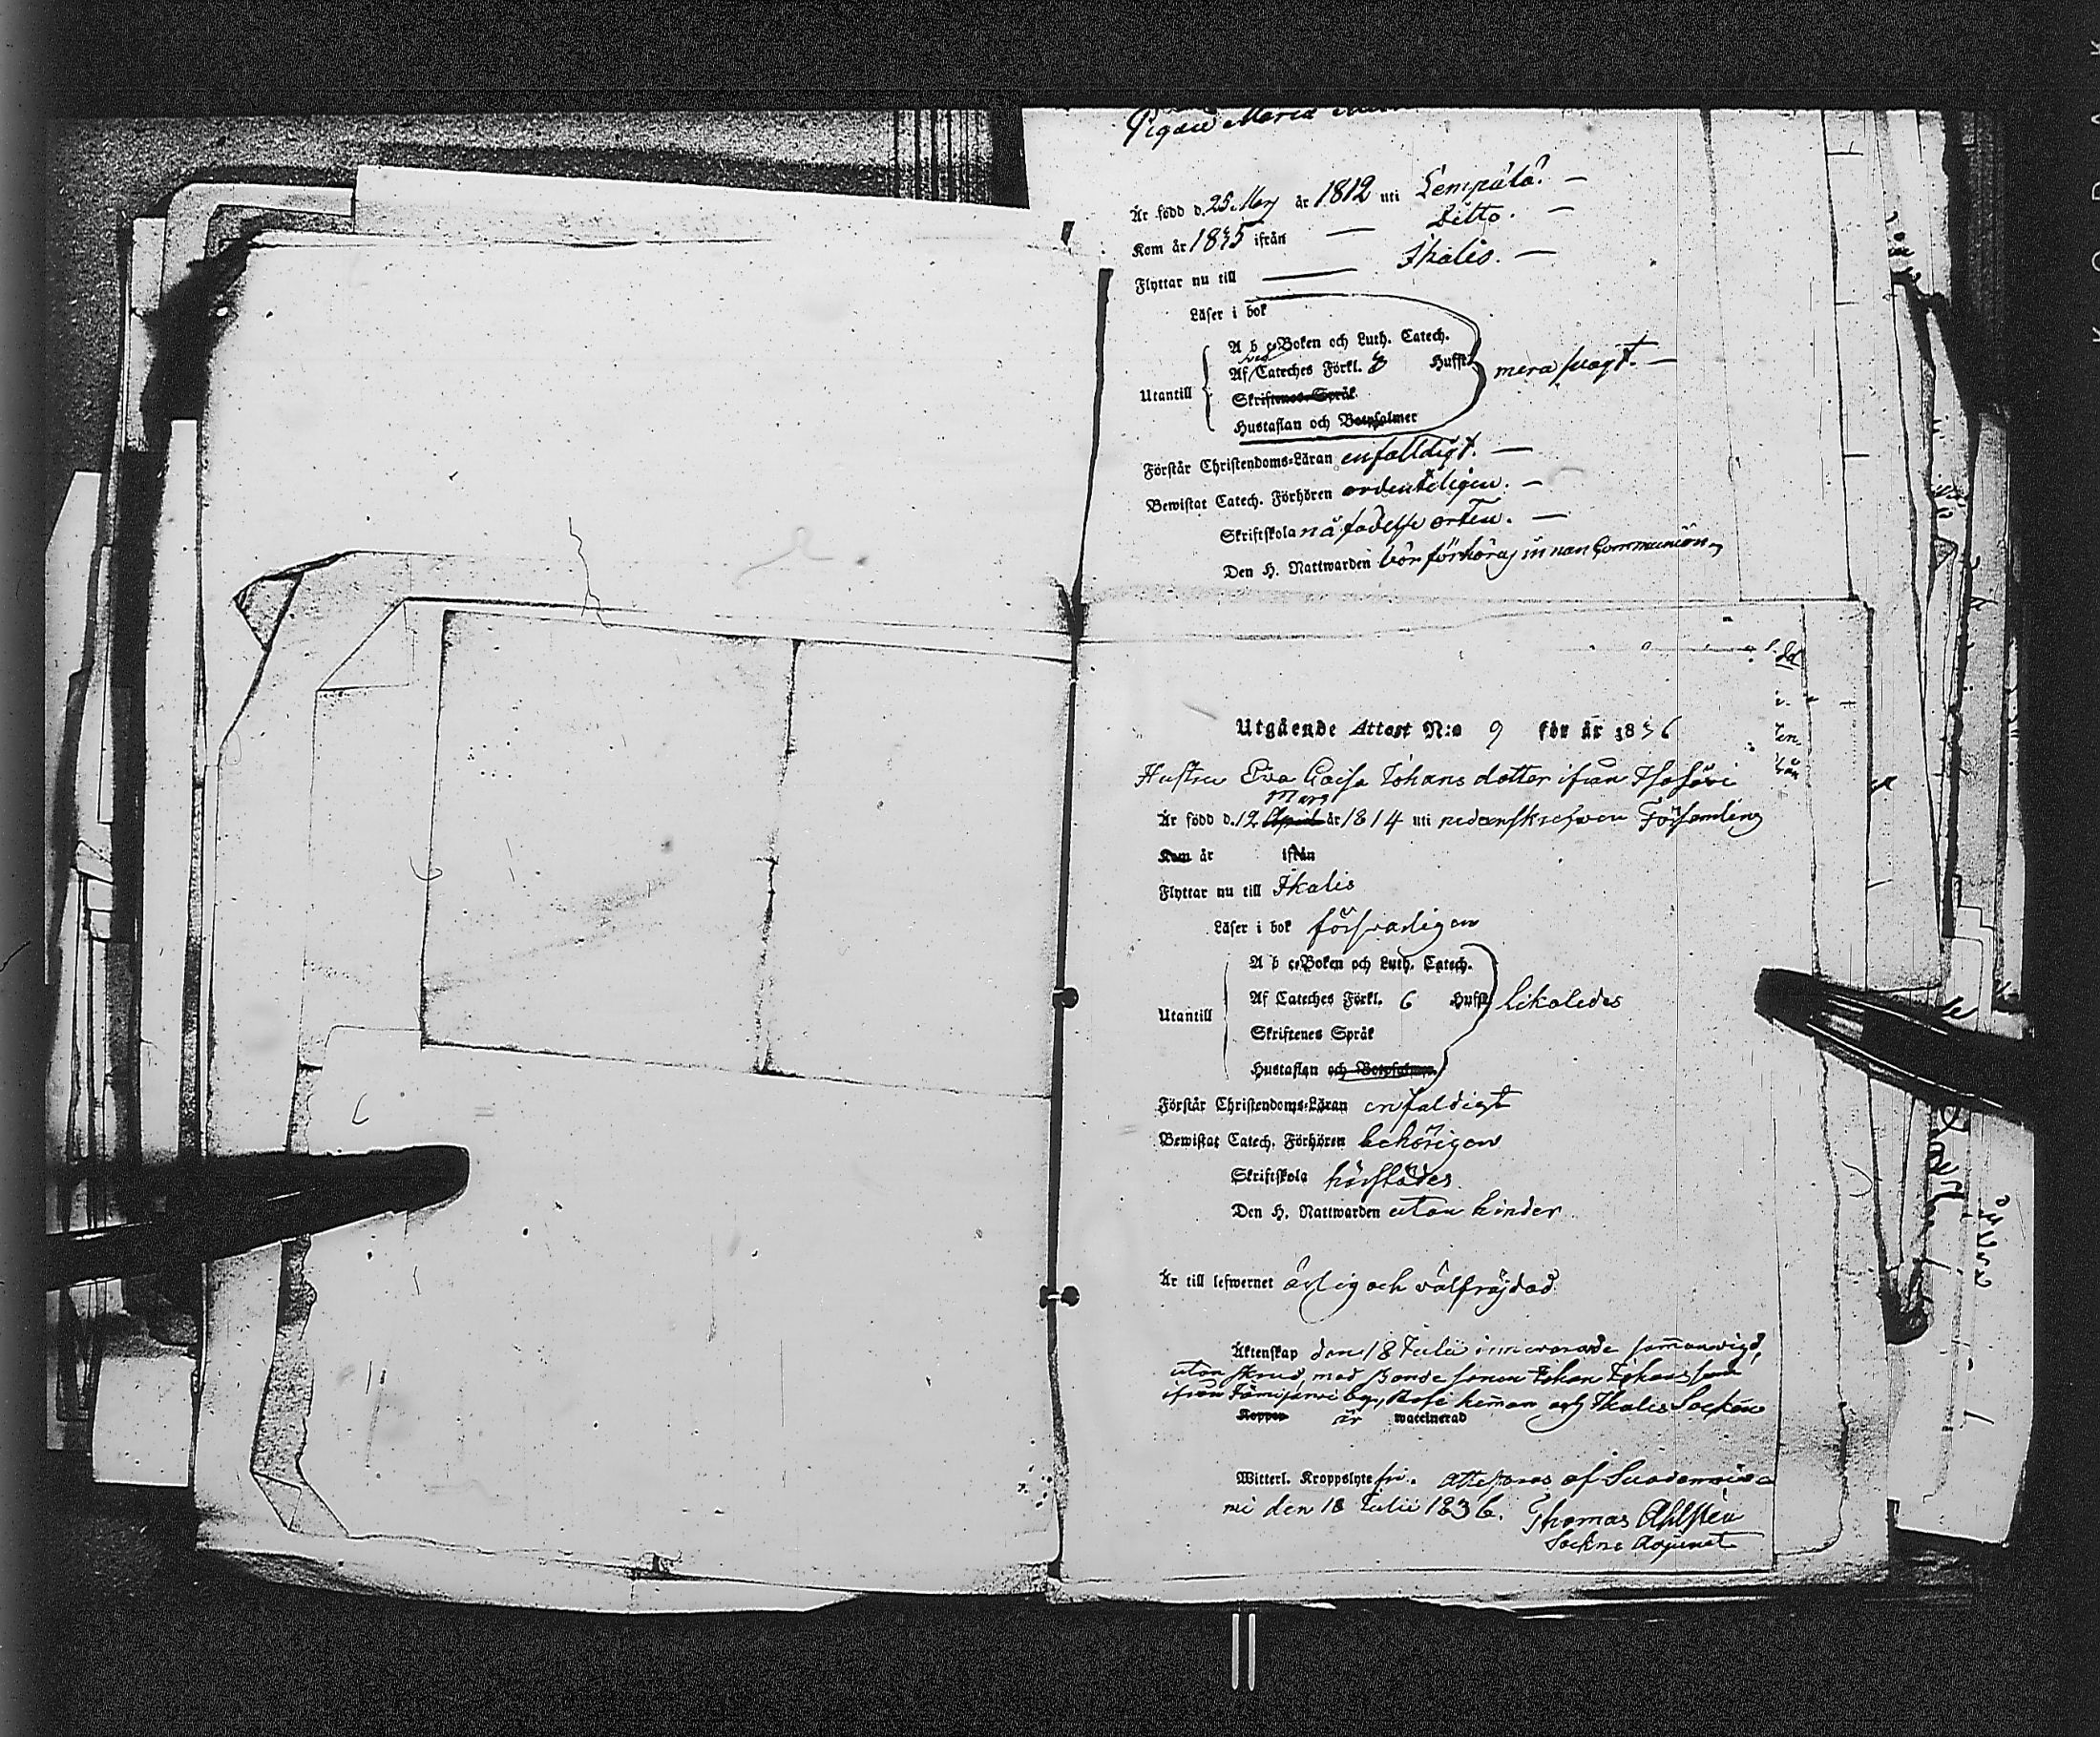 Pigan Maria
Är född d. 25 Maij år 1812 uti Lempälä. —
Kom år 1835 ifrån — Ditto. —
Flyttar nu till — Ikalis. —
Läser i bok
A b c-Boken och Luth. Catech.
Af Cateches Förkl. Hufst. mera svagt. —
Utantill
Skriftenes Språk
Hustaflan och Botpsalmer
Förstår Christendoms-Läran enfalldigt. —
Bewistat Catech. Förhören ordenteligen. —
Skriftskola på födelse orten. —
Den H. Nattwarden bör förhöras innan Communion.
Utgående Attest N:o 9 för år 1836
Hustru Eva Caisa Johans dotter ifrån
Mars
Är född d. 12 April år 1814 uti nedanskrefven Församling
Kom år ifrån
Flyttar nu till Ikalis
Läser i bok försvarligen
A b c-Boken och Luth. Catech.
Af Cateches Förkl. 6 Hufst. likaledes
Utantill
Skriftenes Språk
Hustaflan och Botpsalmer.
Förstår Christendoms-Läran enfaldigt
Bewistat Catech. Förhören behörigen
Skriftskola härstädes
Den H. Nattwarden utan hinder
Är till lefwernet ärlig och välfräjdad
Äktenskap den 18 Julii innevarande sammanvigd,
utan skrud, med Bonde sonen Johan Johansson
ifrån Jämijärvi by, hemman och Ikalis Socken
Koppor är waccinerad
Witterl. Kroppslyte fri. Attesteras af Suodennie-
mi den 18 Julii 1836. Thomas Ahlsten
Sockne Adjunct